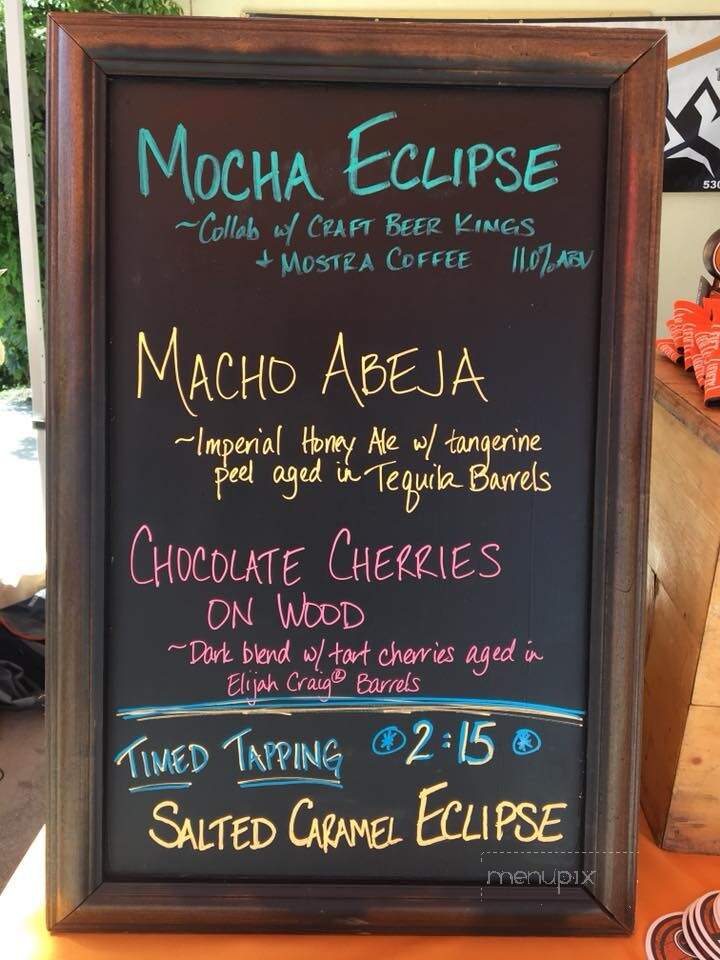 MOCHA ECLIPSE
~Collab w/ CRAFT BEER KINGS
+ MOSTRA COFFEE 11.0% ABV
MACHO ABEJA
~Imperial Honey Ale w/ tangerine
peel aged in Tequila Barrels
CHOCOLATE CHERRIES
ON WOOD
~Dark blend w/ tart cherries aged in
Elijah Craig® Barrels
TIMED TAPPING * 2:15 *
SALTED CARAMEL ECLIPSE
menupix
530